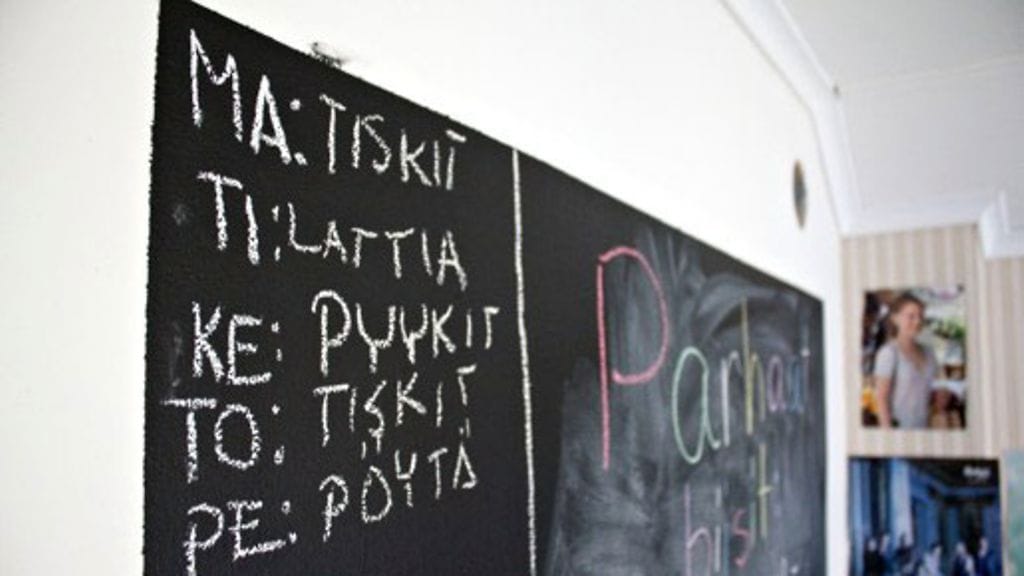 MA: TISKIT
TI: LATTIA
KE: PYYKIT
TO: TISKIT
PE: PÖYTÄ
Parhaat
bisit